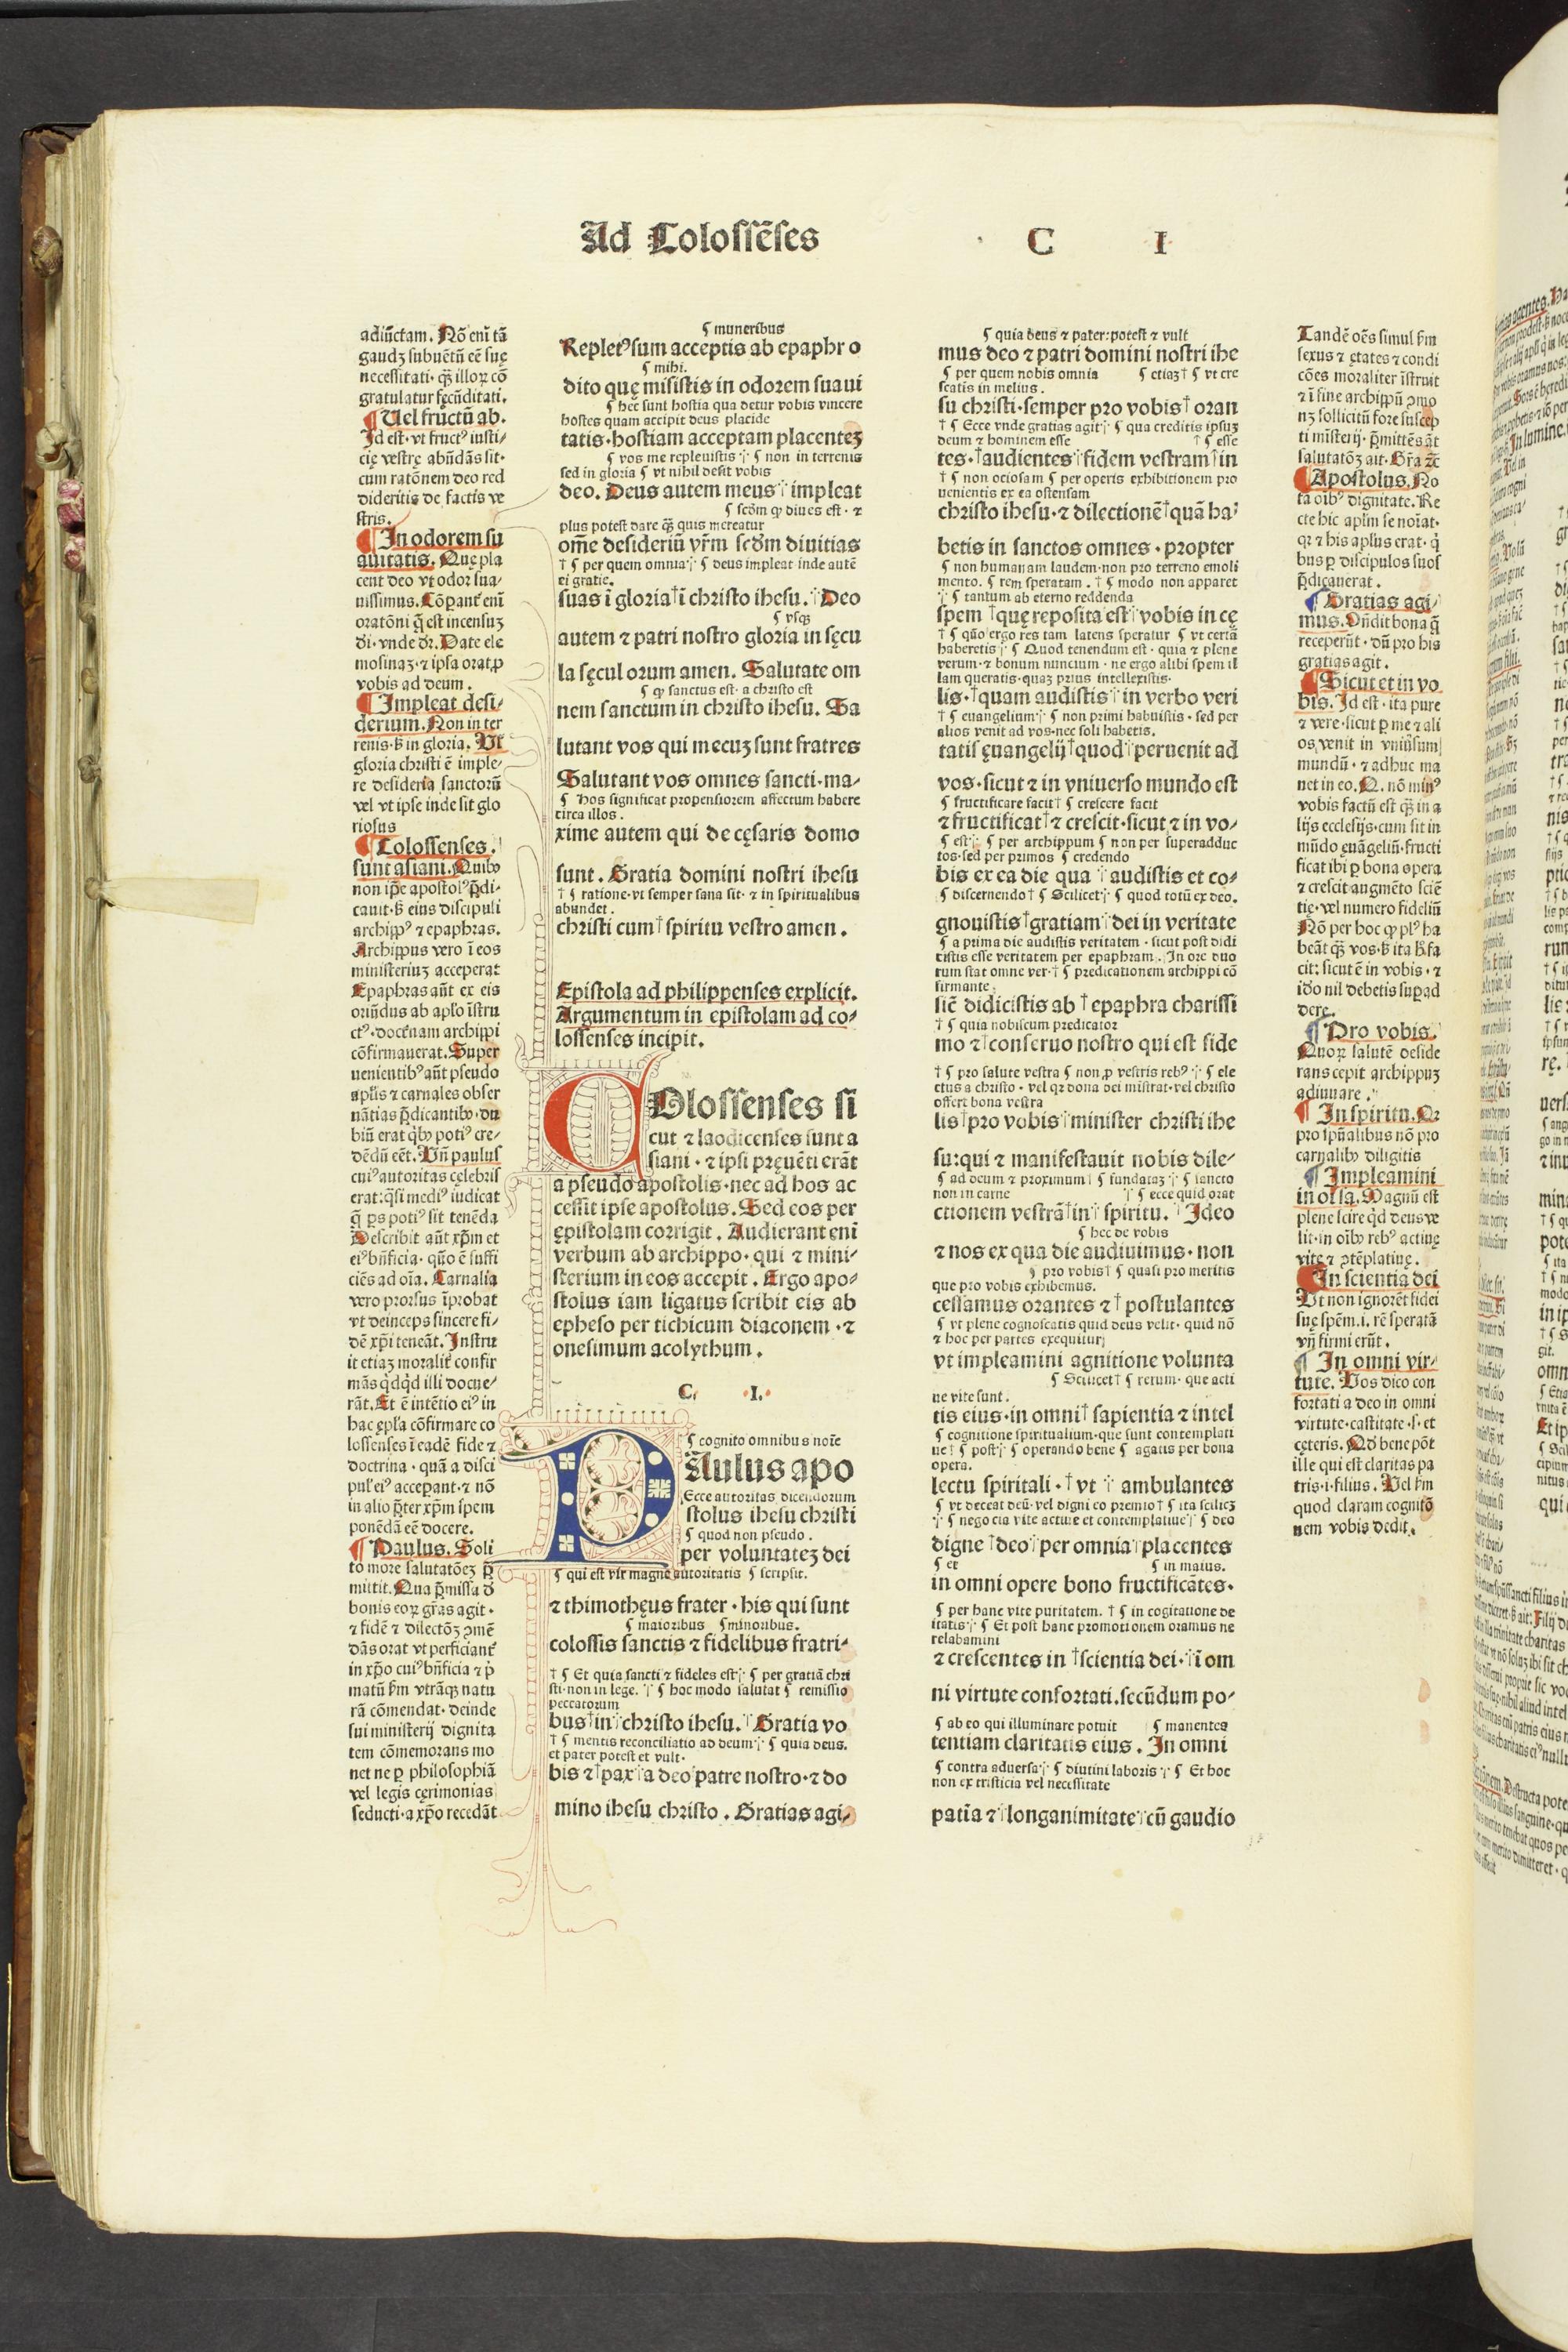 Ad Colossēses
C I
adiūctam. Nō eni tā
gaudꝫ subuētū eē suę
necessitati· qꝫ̄ illoꝝ cō
gratulatur fęcūditati.
¶ Uel fructū ab.
Id est· vt fructꝰ iusti⸗
cię vestrę abūdās sit·
cum ratōnem deo red
dideritis de factis ve
stris.
¶ In odorem su
auitatis. Quę pla
cent deo vt odor sua⸗
uissimus. Cōꝑant᷑ eni
oratōni q̄ est incensuꝫ
di· vnde dr. Date ele
mosinaꝫ· ⁊ ipsa orat ꝓ
vobis ad deum.
¶ Impleat desi⸗
derium. Non in ter
renis· ß in gloria. Vt
gloria christi ē imple⸗
re desideria sanctorū
vel vt ipse inde sit glo
riosus
¶ Colossenses.
sunt asiani. Quibꝰ
non ip̄e apostolꝰ p̄di⸗
cauit· ß eius discipuli
archippꝰ ⁊ epaphras.
Archippus vero ī eos
ministeriuꝫ acceperat
Epaphras aūt ex eis
oriūdus ab apło īstru
ctꝰ· doctrinam archippi
cōfirmauerat. Super
uenientibꝰ aūt pseudo
apłis ⁊ carnales obser
uātias p̄dicantibꝰ· du
biū erat qͥbꝰ potiꝰ cre⸗
dēdū eēt. Uñ paulus
cuiꝰ autoritas cęlebris
erat: q̄si mediꝰ iudicat
q̄ ps potiꝰ sit tenēda
Describit aūt xp̄m et
eiꝰ bñficia· quō ē suffi
ciēs ad oīa. Carnalia
vero prorsus īprobat
vt deinceps sincere fi⸗
dē xp̄i teneāt. Instru
it etiaꝫ moralit᷑ confir
mās qͥdqͥd illi docue⸗
rāt. Et ē intētio eiꝰ in
hac ępła cōfirmare co
lossenses ī eadē fide ⁊
doctrina· quā a disci
pulꝭ eiꝰ acceperant· ⁊ nō
in alio p̄ter xp̄m spem
ponēdā eē docere.
¶ Paulus. Soli
to more salutatōeꝫ p̄
mittit. Qua p̄missa d̄
bonis eoꝝ grās agit·
⁊ fidē ⁊ dilectōꝫ ꝯmē
dās orat vt perficiant᷑
in xp̄o cuiꝰ bñficia ⁊ p̄
matū ßm vtrāqꝫ natu
rā cōmendat· deinde
sui ministerij dignita
tem cōmemorans mo
net ne ꝑ philosophiā
vel legis cęrimonias
seducti· a xp̄o recedāt
¶ muneribus
Repletꝰ sum acceptis ab epaphro
¶ mihi.
dito quę misistis in odorem suaui
¶ hec sunt hostia qua detur vobis vincere
hostes quam accipit deus placide
tatis· hostiam acceptam placenteꝫ
¶ vos me repleuistis ¶ non in terrenis
sed in gloria ¶ vt nihil desit vobis
deo. Deus autem meus impleat
¶ scdm qꝫ diues est· ⁊
plus potest dare qꝫ̄ quis mereatur
om̄e desideriū vr̄m scdm diuitias
† ¶ per quem omnia ¶ deus impleat inde autē
ei gratie.
suas ī gloria † ī christo ihesu. Deo
¶ vsqꝫ
autem ⁊ patri nostro gloria in sęcu
la sęculorum amen. Salutate om
¶ qꝫ sanctus est· a christo est
nem sanctum in christo ihesu. Sa
lutant vos qui mecuꝫ sunt fratres
Salutant vos omnes sancti· ma⸗
¶ Hos significat propensiorem affectum habere
circa illos.
xime autem qui de cęsaris domo
sunt. Gratia domini nostri ihesu
† ¶ ratione· vt semper sana sit· ⁊ in spiritualibus
abundet.
christi cum † spiritu vestro amen.
Epistola ad philippenses explicit.
Argumentum in epistolam ad co⸗
lossenses incipit.
COlossenses si
cut ⁊ laodicenses sunt a
siani· ⁊ ipsi pręuēti erāt
a pseudo apostolis· nec ad hos ac
cessit ipse apostolus. Sed eos per
ępistolam corrigit. Audierant eni
verbum ab archippo· qui ⁊ mini⸗
sterium in eos accepit. Ergo apo⸗
stolus iam ligatus scribit eis ab
epheso per tichicum diaconem· ⁊
onesimum acolythum.
C. ·I.·
¶ cognito omnibus noīe
PAulus apo
Ecce autoritas dicendorum
stolus ihesu christi
¶ quod non pseudo.
per voluntateꝫ dei
¶ qui est vir magne autoritatis ¶ scripsit.
⁊ thimothęus frater· his qui sunt
¶ maioribus ¶ minoribus.
colossis sanctis ⁊ fidelibus fratri⸗
† ¶ Et quia sancti ⁊ fideles est ¶ per gratiā chri
sti· non in lege. ¶ hoc modo salutat ¶ remissio
peccatorum
bus † in christo ihesu. Gratia vo
† ¶ mentis reconciliatio ad deum ¶ quia deus.
et pater potest et vult·
bis ⁊ † pax a deo patre nostro· ⁊ do
mino ihesu christo. Gratias agi⸗
¶ quia deus ⁊ pater: potest ⁊ vult
mus deo ⁊ patri domini nostri ihe
¶ per quem nobis omnia ¶ etiaꝫ † ¶ vt cre
scatis in melius.
su christi· semper pro vobis † oran
† ¶ Ecce vnde gratias agit ¶ qua creditis ipsuꝫ
deum ⁊ hominem esse † ¶ esse
tes· † audientes fidem vestram in
† ¶ non ociosam ¶ per operis exhibitionem pro
uenientis ex ea ostensam
christo ihesu· ⁊ dilectionē † quā ha⸗
betis in sanctos omnes· propter
¶ non humanam laudem· non pro terreno emoli
mento. ¶ rem speratam. † ¶ modo non apparet
¶ tantum ab eterno reddenda
spem † quę reposita est vobis in cę
† ¶ quō ergo res tam latens speratur ¶ vt certā
haberetis ¶ Quod tenendum est· quia ⁊ plene
verum· ⁊ bonum nuncium· ne ergo alibi spem il
lam queratis· quaꝫ prius intellexistis·
lis· † quam audistis in verbo veri
† ¶ euangelium ¶ non primi habuistis· sed per
alios venit ad vos· nec soli habetis.
tatis ęuangelij † quod peruenit ad
vos· sicut ⁊ in vniuerso mundo est
¶ fructificare facit † ¶ crescere facit
⁊ fructificat † ⁊ crescit· sicut ⁊ in vo⸗
¶ est ¶ per archippum ¶ non per superadduc
tos· sed per primos ¶ credendo
bis ex ea die qua audistis et co⸗
¶ discernendo † ¶ Scilicet ¶ quod totū ex deo.
gnouistis † gratiam dei in veritate
¶ a prima die audistis veritatem· sicut post didi
cistis esse veritatem per epaphram. In ore duo
rum stat omne ver· † ¶ predicationem archippi cō
firmante.
sicē didicistis ab † epaphra charissi
† ¶ quia nobiscum predicator
mo ⁊ † conseruo nostro qui est fide
† ¶ pro salute vestra ¶ non ꝓ vestris rebꝰ ¶ ele
ctus a christo· vel qꝛ dona dei mistrat· vel christo
offert bona vestra
lis † pro vobis minister christi ihe
su: qui ⁊ manifestauit nobis dile⸗
¶ ad deum ⁊ proximum ¶ fundataꝫ ¶ sancto
non in carne ¶ ecce quid orat
ctionem vestrā † in spiritu. Ideo
¶ hec de vobis
⁊ nos ex qua die audiuimus· non
¶ pro vobis † ¶ quasi pro meritis
que pro vobis exhibemus.
cessamus orantes ⁊ † postulantes
¶ vt plene cognoscatis quid deus velit· quid nō
⁊ hoc per partes exequitur
vt impleamini agnitione volunta
¶ Scilicet † ¶ rerum· que acti
ue vite sunt.
tis eius· in omni † sapientia ⁊ intel
¶ cognitione spiritualium· que sunt contemplati
ue ¶ post ¶ operando bene ¶ agatis per bona
opera.
lectu spiritali· † vt ambulantes
¶ vt deceat deū· vel digni eo premio † ¶ ita scilicꝫ
¶ negocia vite actiue et contemplatiue ¶ deo
digne deo per omnia placentes
¶ et ¶ in maius.
in omni opere bono fructificātes·
¶ per hanc vite puritatem. † ¶ in cogitatione de
itatis ¶ Et post hanc promotionem oramus ne
relabamini
⁊ crescentes in † scientia dei· ī om
ni virtute confortati. secūdum po⸗
¶ ab eo qui illuminare potuit ¶ manentes
tentiam claritatis eius. In omni
¶ contra aduersa ¶ diutini laboris ¶ Et hoc
non ex tristicia vel necessitate
patīa ⁊ longanimitate cū gaudio
Tandē oēs simul ßm
sexus ⁊ ętates ⁊ condi
cōes moraliter īstruit
⁊ ī fine archippū ꝯmo
nꝫ sollicitū fore suscep
ti misterij· p̄mittēs āt
salutatōꝫ ait· Grā ⁊c̄
¶ Apostolus. No
ta oibꝰ dignitate. Re
cte hic aplm se noīat·
qꝛ ⁊ his aplus erat· qͥ
bus ꝑ discipulos suos
p̄dicauerat.
¶ Gratias agi⸗
mus. Oñdit bona q̄
receperūt· dū pro his
gratias agit.
¶ Sicut et in vo
bis. Id est· ita pure
⁊ vere· sicut ꝑ me ⁊ ali
os venit in vniūsum
mundū· ⁊ adhuc ma
net in eo. Q. nō minꝰ
vobis factū est qꝫ̄ in a
lijs ecclesijs· cum sit in
mūdo euāgeliū· fructi
ficat ibi ꝑ bona opera
⁊ crescit augmēto sciē
tię· vel numero fideliū
Nō per hoc qꝫ plꝰ ha
beāt qꝫ̄ vos· ß ita h̄ fa
cit: sicut ē in vobis· ⁊
ido nil debetis supad
dere.
¶ Pro vobis.
Quoꝝ salutē deside
rans cepit archippuꝫ
adiuuare.
¶ In spiritu. Qꝛ
pro spūalibus nō pro
carnalibꝰ diligitis
¶ Impleamini
in oīsa. Magnū est
plene scire qͥd deus ve
lit· in oībꝰ rebꝰ actiuę
vitę ⁊ ꝯtēplatiuę.
¶ In scientia dei
Vt non ignorēt fidei
suę spēm .i. rē speratā
vn̄ firmi erūt.
¶ In omni vir⸗
tute. Vos dico con
fortati a deo in omni
virtute· castitate· s· et
cęteris. Qd bene pōt
ille qui est claritas pa
tris· i· filius. Vel ßm
quod claram cognitō
nem vobis dedit.